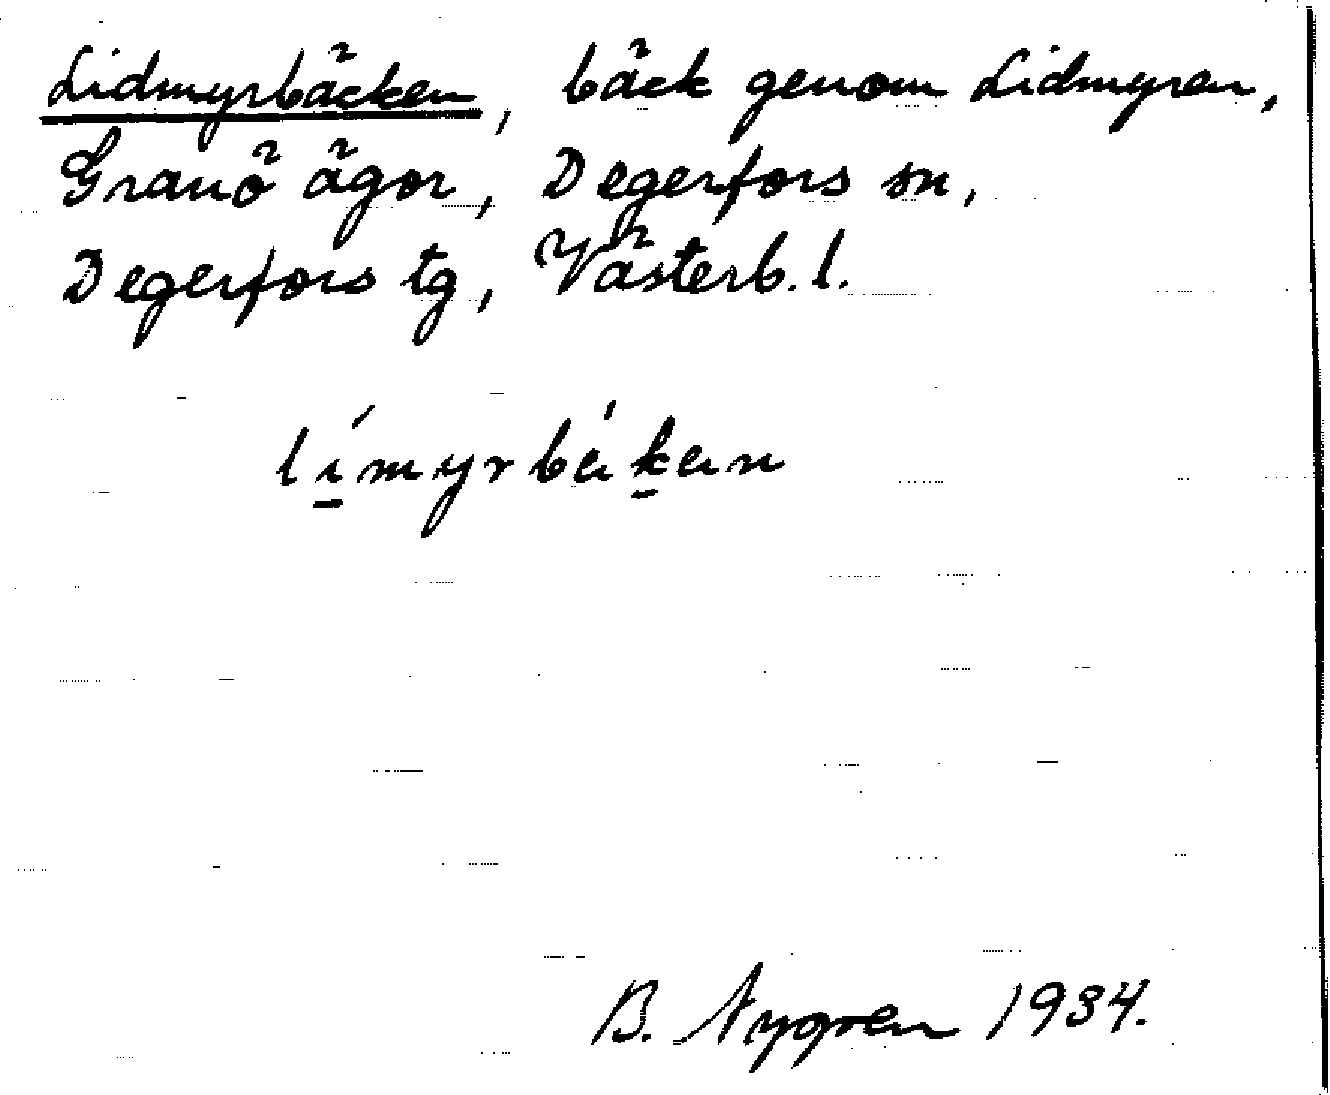 Lidmyrbäcken, bäck genom Lidmyren,
Granö ägor, Degerfors sn,
Degerfors tg, Västerb. l.
lı̱́myrbáḵan
B. Nygren 1934.